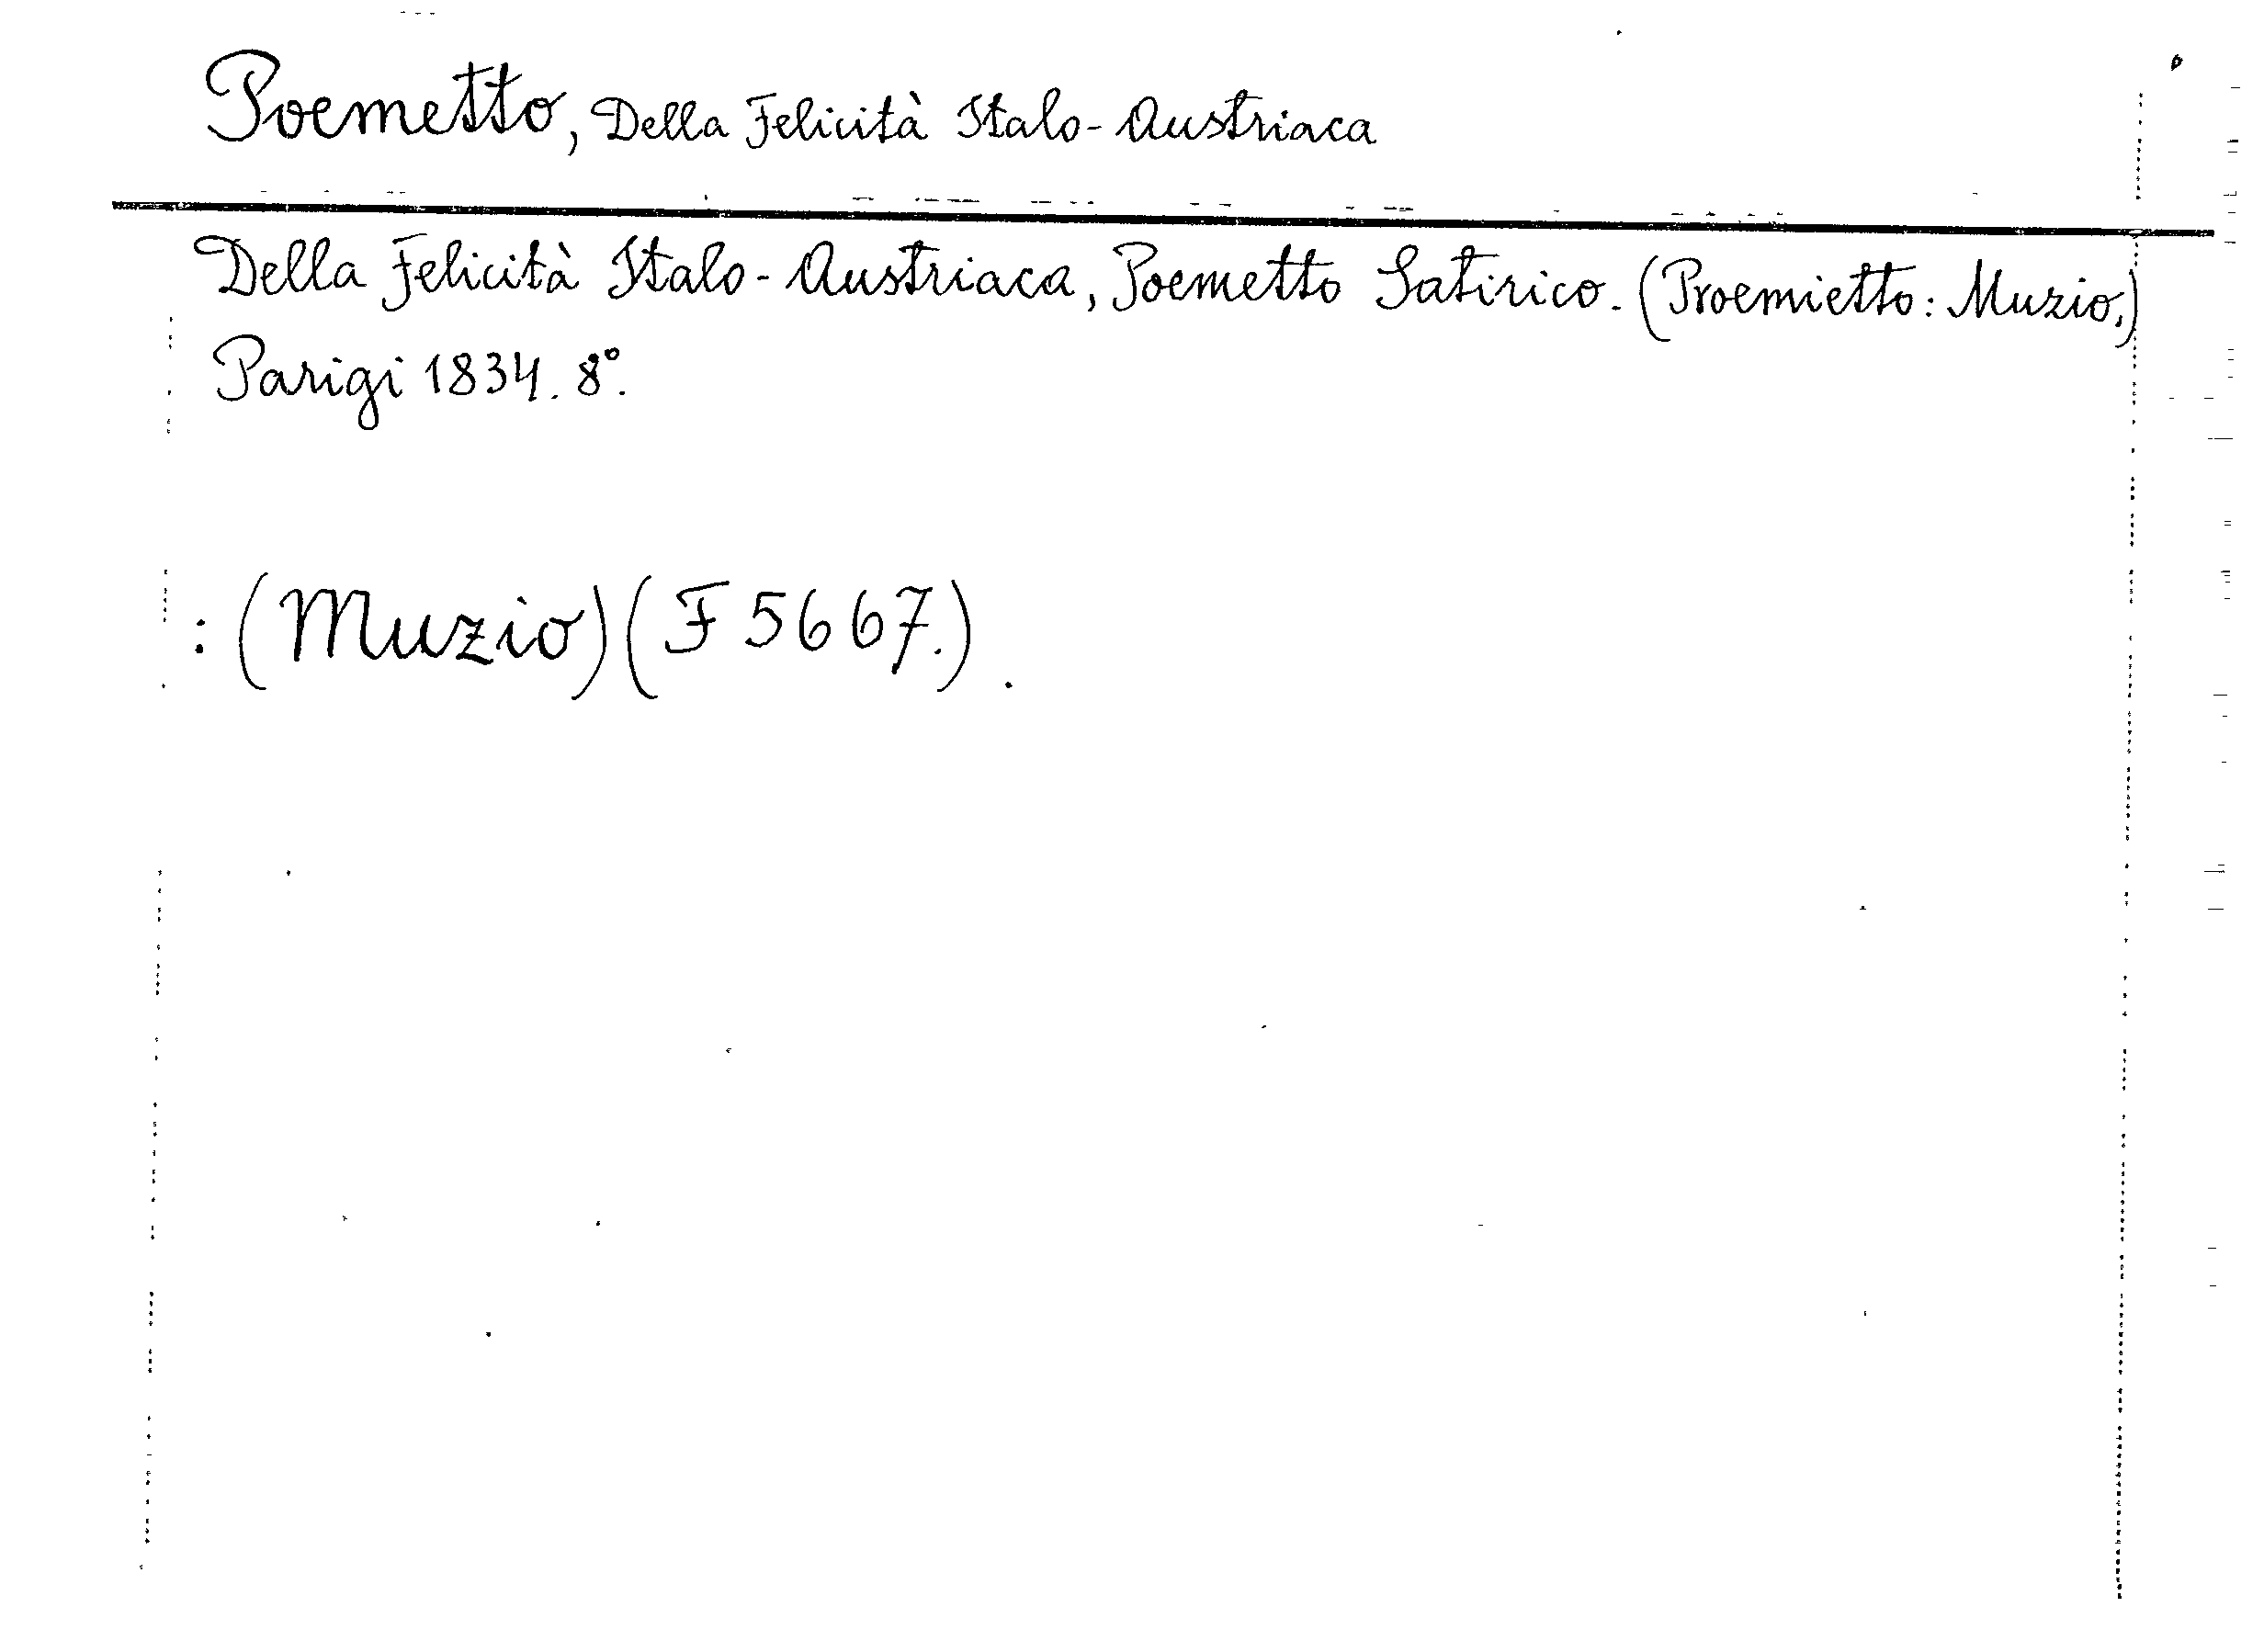 Poemetto, Della Felicità Italo-Austriaca
Della Felicità Italo-Austriaca, Poemetto Satirico. (Proemietto: Muzio.)
Parigi 1834. 8°.
: (Muzio) (F 5667.) .